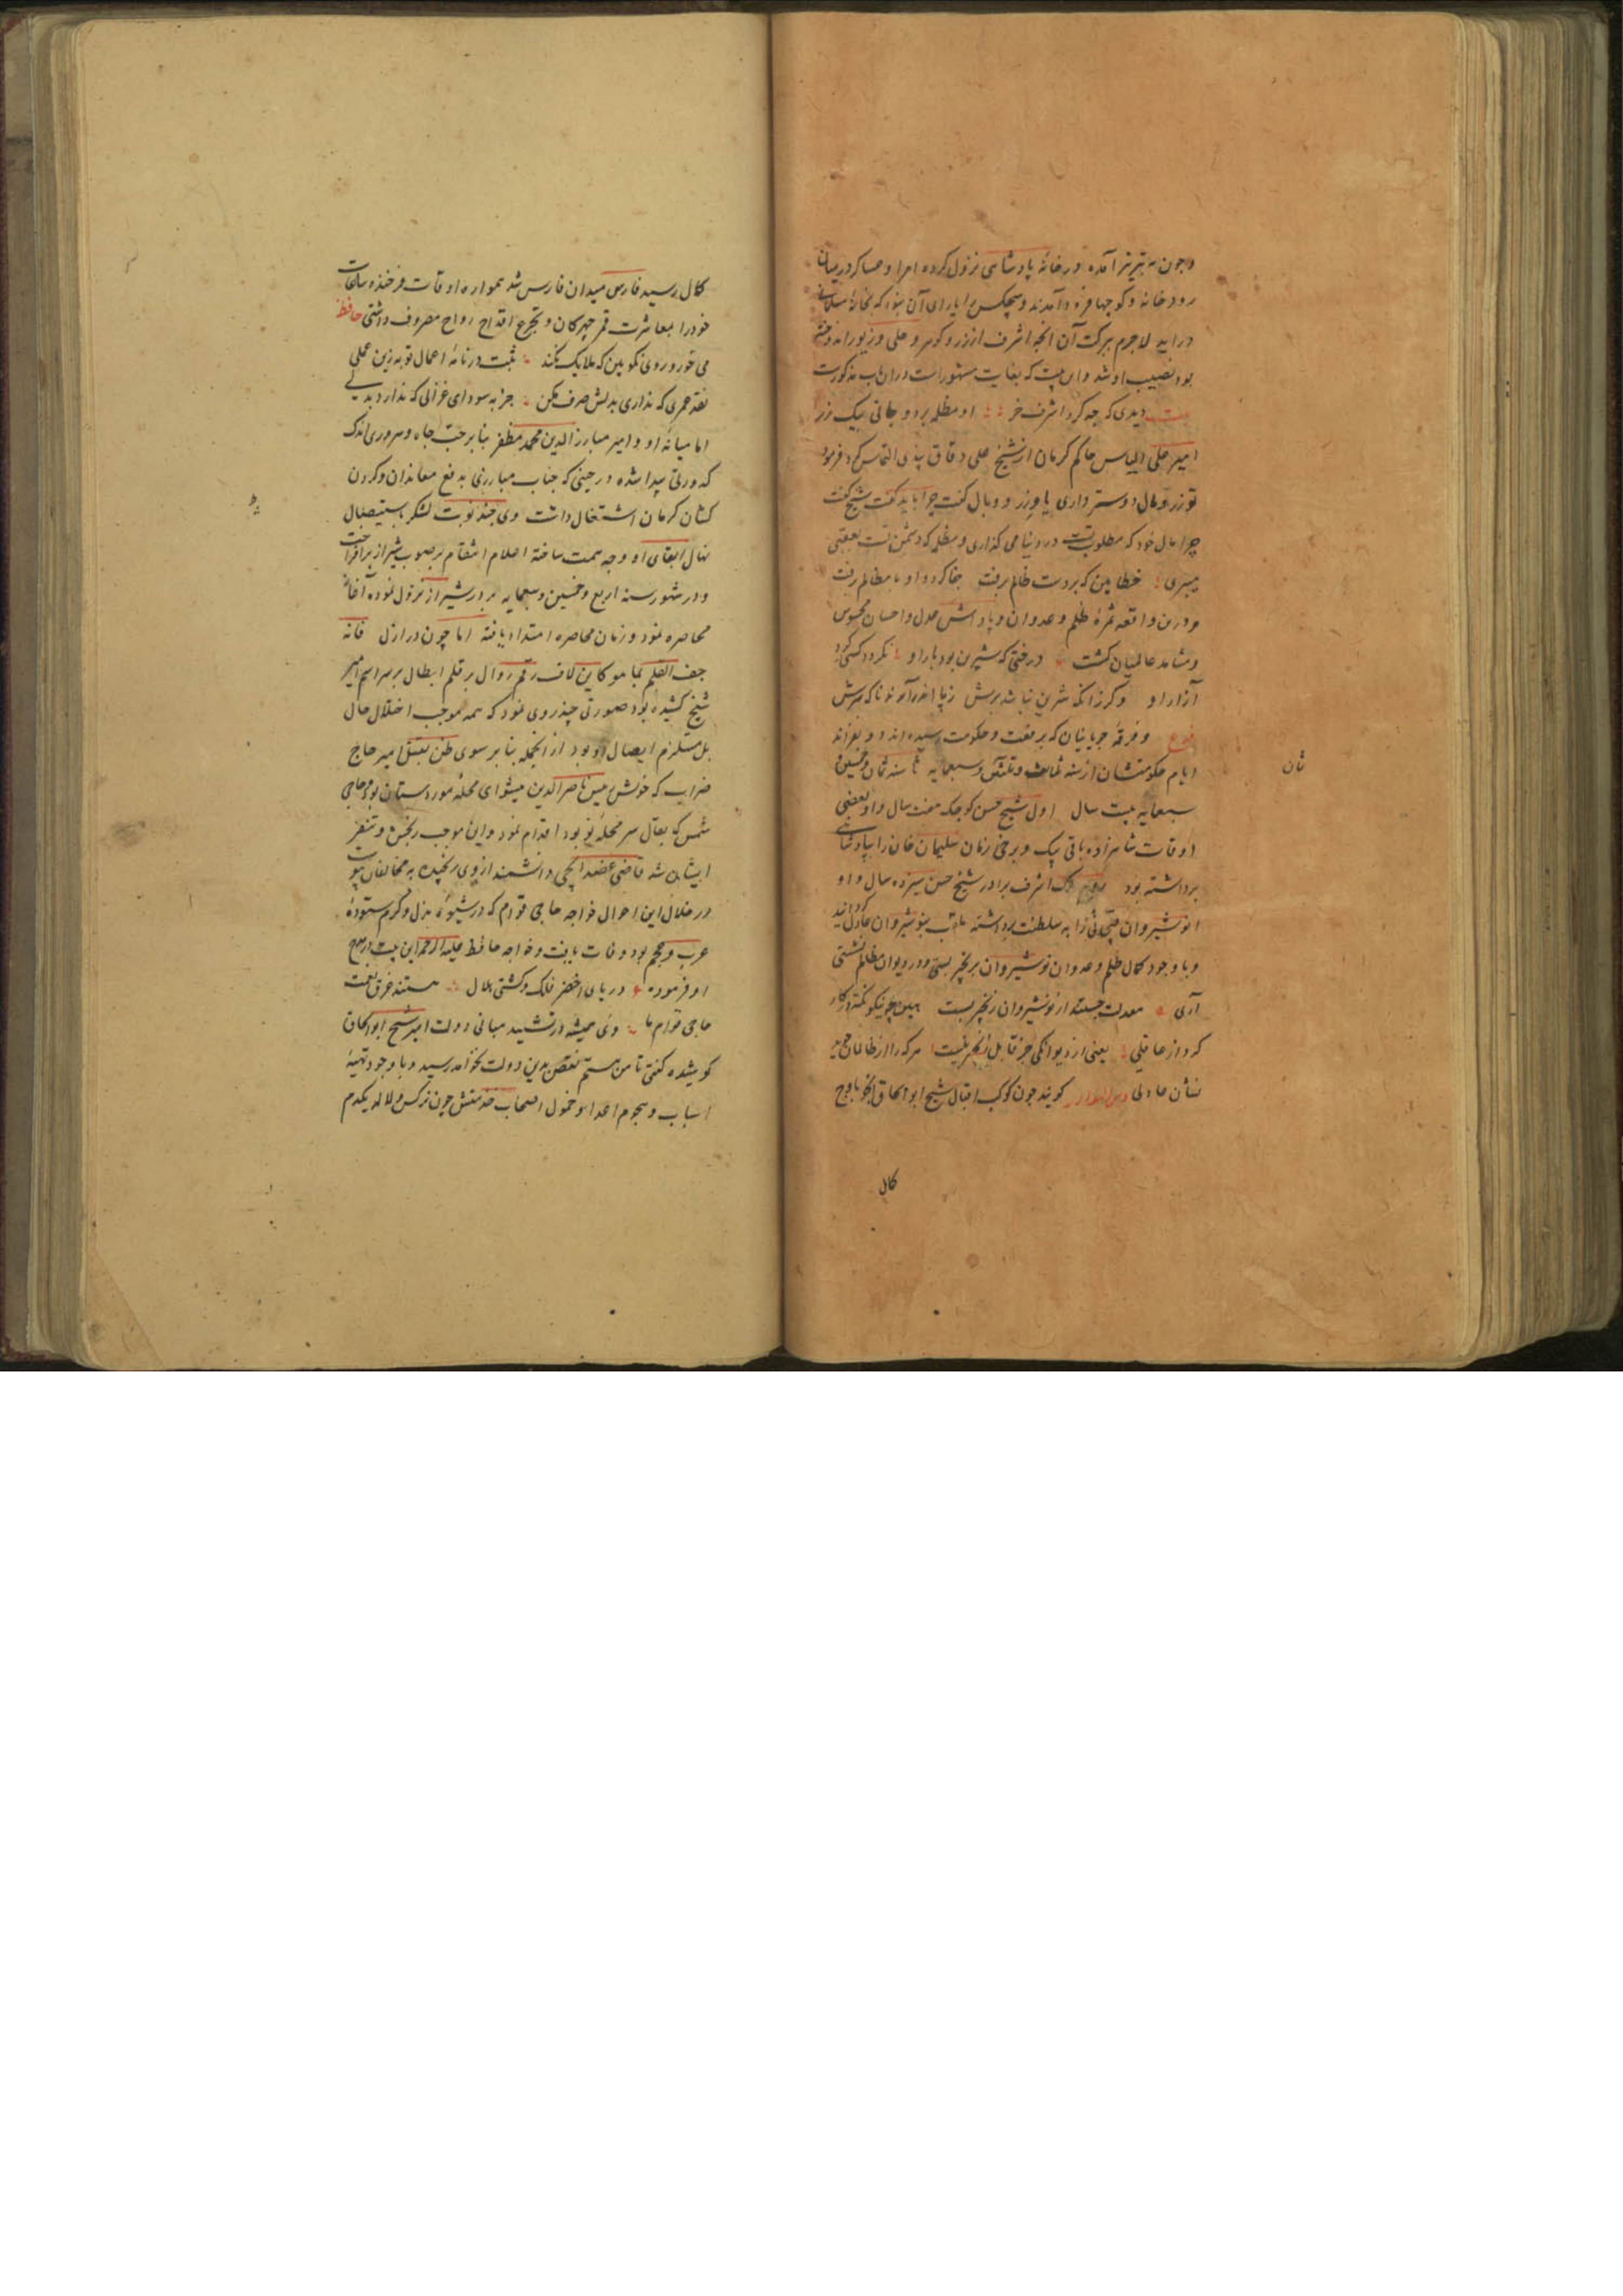 وچون به تبریز آمده در خانهٔ پادشاهی نزول کرده امرا و عساکر در میان
رودخانه و کوچها فرود آمدند و هیچکس را یارای آن نبود که بخانهٔ مسلمانی
در اید لاجرم ببرکت آن انچه اشرف از زر و کوهر و حلی و زیور اندوخته
بود نصیب او شد و این بیت که بغایت مشهورست در ان باب مذکورست
بیت دیدی که چه کرد اشرف خر او مظلمه برد و جانی بیک زر
امیر علی الیاس حاکم کرمان از شیخ علی دقاق پندی التماس کرد فرمود
تو زر و مال دوستر داری یا وزر و وبال کفت چرا باید کفت شیخ کفت
چرا مال خود که مطلوب تست در دنیا می کذاری و مظلمه که دشمن تست بعقبی
میبری خطا بین که بر دست ظالم برفت جفا کرد و او با مظالم برفت
و درین واقعه ثمرهٔ ظلم و عدوان و پاداش عدل و احسان محسوس
و مشاهد عالمیان کشت درختی که شیرین بود بار او نکردد کسی کرد
آزار او وکر زانکه شیرین نباشد برش ز پا اندر آرند ناکه سرش
و فرقهٔ چوپانیان که برفعت و حکومت رسیده اند دو نفراند
ایام حکومتشان از سنه ثمان و ثلثین و سبعمایه تا سنه ثمان و خمسین و
سبعمایه بیست سال اول شیخ حسن کوچک هفت سال و او بعضی
اوقات شاهزاده ساتی بیک و برخی زمان سلیمان خان را بپادشاهی
برداشته بود دوم ملک اشرف برادر شیخ حسن سیزده سال و او
انوشیروان قبچاقی را به سلطنت برداشته ملقب بنوشیروان عادل کردانید
و با وجود کمال ظلم و عدوان نوشیروان بر زنجیر بستی و در دیوان مظالم نشستی
آری معدلت جستند از نوشیروان زنجیر بست بین چه نیکو نکته در کار
کرد از عاقلی یعنی از دیوانکی جز قابل زنجیر نیست هر که را از ظالمان
نشان عادلی کویند چون کوکب اقبال شیخ ابو اسحاق اینجو باوج
کمال
ثان
کمال رسید فارس میدان فارس شد همواره اوقات فرخنده ساعات
خود را بمعاشرت قمر چهرکان و تجرع اقداح رواح مصروف داشتی حافظ
می خور و روی نکو بین که ملایک نکند ثبت در نامهٔ اعمال تو به زین عملی
نقد عمری که نداری بدلش صرف مکن جز به سودای غزالی که ندارد بدلی
اما میانهٔ او و امیر مبارز الدین محمد مظفر بنا بر حب جاه و سروری اندک
کدورتی پیدا شده در حینی که جناب مبارزی بدفع معاندان و کردن
کشان کرمان اشتغال داشت وی چند نوبت لشکر باستیصال
نهال ابقای او وجه همت ساخته اعلام انتقام بر صوب شیراز برافراخت
و در شهور سنه اربع و خمسین و سبعمایه بر در شیراز نزول نموده آغاز
محاصره نمود و زمان محاصره امتداد یافته اما چون در ازل فانه
جف القلم بما هو کاین لاف رقم زوال بر قلم ابطال بر سر اسم امیر
شیخ کشیده بود صورتی چند روی نمود که همه موجب اختلال حال
بل مستلزم ایصال او بود از انجمله بنا بر سوی ظن بقتل امیر حاج
ضراب که خوش رییس ناصر الدین میشوای محلهٔ موردستان بود و حاجی
شمس که بقال سر محلهٔ نو بود اقدام نمود و این موجب رنجش و تنفر
ایشان شد قاضی عضد ایجی دانشمند از وی رنجیده به مخالفان پیوست
در خلال این احوال خواجه حاجی قوام که در شیوهٔ بذل و کرم ستودهٔ
عرب و عجم بود وفات یافت و خواجه حافظ علیه الرحمه این بیت در مدح
او فرموده دریای اخضر فلک و کشتی هلال هستند غرق نعمت
حاجی قوام ما وی همیشه در تشیید مبانی دولت امیر شیخ ابو اسحاق
کوشیده کفتی تا من هستم نقص بدین دولت نخواهد رسید و با وجود تهیهٔ
اسباب و هجوم اعدا و خمول اصحاب خدمتش چون نرکس و لاله یکدم